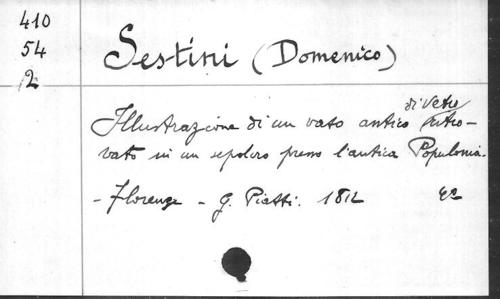 410
54
2
Sestini (Domenico)
di Vetro
Illustrazione di un vaso antico ritro-
vato in un sepolcro presso l'antica Populonia.
- Florenze - G. Piatti. 1812